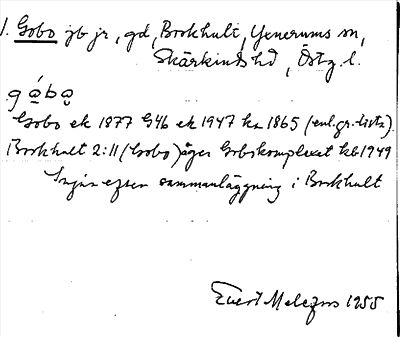 1. Gobo jb jr, gd, Borkhult, Yxnerums sn,
Skärkinds hd, Östg. l.
gǻbo̥
Gobo ek 1877 G4b ek 1947 ka 1865 (enl. gr.-lista).
Borkhult 2:11 (Gobo) äger Gobokomplexet kb 1949
Ingår efter sammanläggning i Borkhult
Evert Melefors 1955